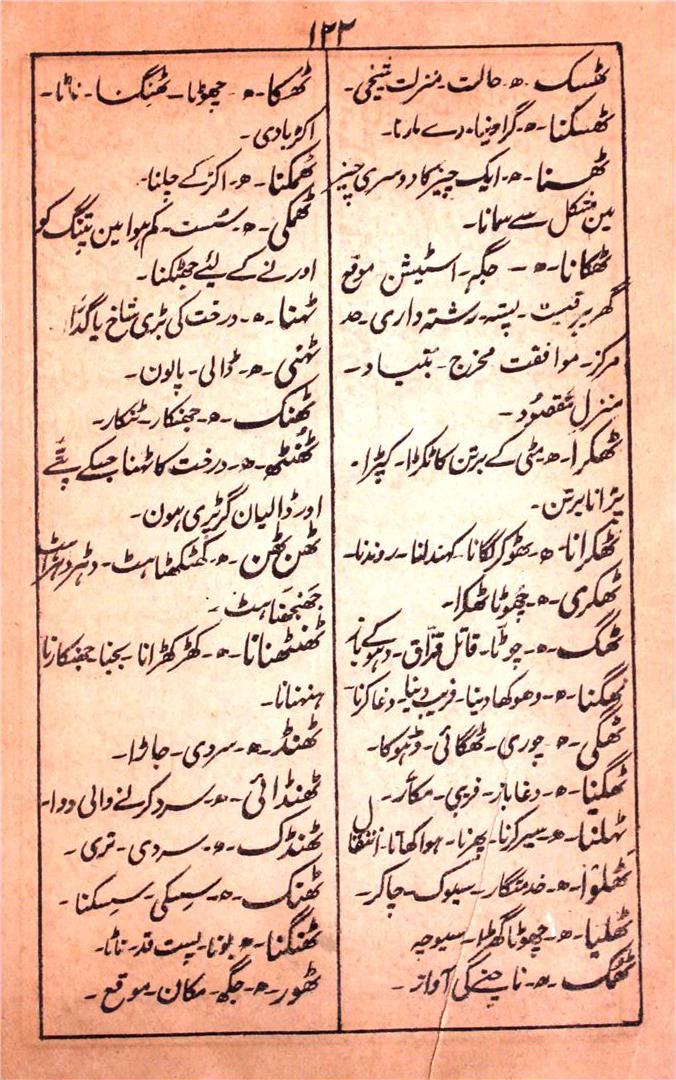 ۱۲۲
ٹھسک ۔ ھ ۔ حالت ۔ منزلت شیخی ۔
ٹھسکنا ۔ ھ ۔ گرا دینا ۔ دے مارنا ۔
ٹھسنا ۔ ھ ۔ ایک چیز کا دوسری چیز
مین مشکل سے سمانا ۔
ٹھکانا ۔ ھ ۔ جگہ ۔ اسٹیشن موقع
گھر ۔ پتہ ۔ رشتہ داری ۔ حد
مرکز ۔ موافقت مخرج ۔ بنیاد ۔
منزل مقصُود ۔
ٹھکرا ۔ ھ ۔ مٹی کے برتن کا ٹکڑا ۔
پُرانا برتن ۔
ٹھکرانا ۔ ھ ۔ ٹھوکر لگانا ۔ کھندلنا ۔ روندنا ۔
ٹھکری ۔ ھ ۔ چھوٹا ٹھکرا ۔
ٹھگ ۔ ھ ۔ چوٹا ۔ قاتل قزّاق ۔ دہوکے باز
ٹھگنا ۔ ھ ۔ دھوکھا دینا ۔ فریب دینا ۔ دغا کرنا
ٹھگی ۔ ھ ۔ چوری ۔ ٹھگائی ۔ دہوکا ۔
ٹھگنیا ۔ ھ ۔ دغا باز ۔ فریبی ۔ مکار ۔
ٹہلنا ۔ ھ ۔ سیر کرنا ۔ پھرنا ۔ ہوا کھانا ۔ انتقال
ٹھلوا ۔ ھ ۔ خدمتگار ۔ سیوک ۔ چاکر ۔
ٹھلیا ۔ ھ ۔ چھوٹا گھڑا ۔ سبوچہ
ٹھمک ۔ ھ ۔ ناچنے کی آواز ۔
ٹھمکا ۔ ھ ۔ چھوٹا ۔ ٹھنگنا ۔ ناٹا ۔
اکڑبادی ۔
ٹھمکنا ۔ ھ ۔ اکڑ کے چلنا ۔
ٹھمکی ۔ ھ ۔ سُست ۔ کم ہوا مین پتنگ کو
اورنے کے لیئے جھٹکنا ۔
ٹہنا ۔ ھ ۔ درخت کی بڑی شاخ یا گدّا
ٹہنی ۔ ھ ۔ ڈالی ۔ پالون ۔
ٹھنک ۔ ھ ۔ جھنکار ۔ ٹنکار ۔
ٹُھنٹھ ۔ ھ ۔ درخت کا ٹہنا جسکے پتّے
اور ڈالیان گر پڑی ہون ۔
ٹھن ٹھن ۔ ھ ۔ کھٹکھٹاہٹ ۔
جھنجھناہٹ ۔
ٹھنٹھنانا ۔ ھ ۔ کھڑکھڑانا بجنا جھنکارنا
ہنہنانا ۔
ٹھنڈ ۔ ھ ۔ سردی ۔ جاڑا ۔
ٹھنڈائی ۔ ھ ۔ سرد کرنے والی دوا ۔
ٹھنڈک ۔ ھ ۔ سردی ۔ تری ۔
ٹھنک ۔ ھ ۔ سسکی ۔ سسکنا ۔
ٹھنگنا ۔ ھ ۔ بونا ۔ پست قد ۔ ناٹا ۔
ٹھور ۔ ھ ۔ جگھ ۔ مکان ۔ موقع ۔